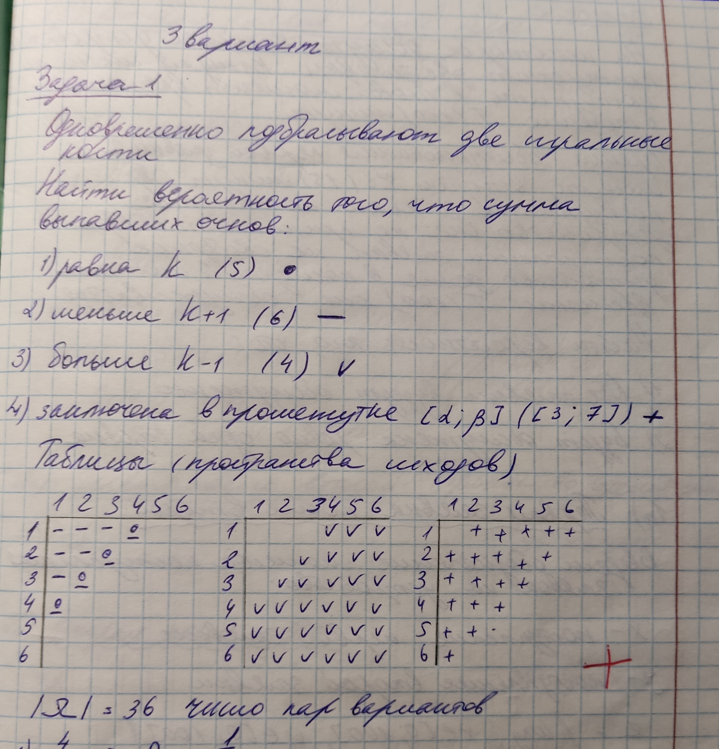 3 вариант
Задача 1
Одновременно подбрасывают две игральные
кости
Найти вероятность того, что сумма
выпавших очков:
1) равна k (5) •
2) меньше k+1 (6) —
3) больше k-1 (4) ✓
4) заключена в промежутке [α; β] ([3; 7]) +
Таблицы (пространства исходов)
1 2 3 4 5 6 1 2 3 4 5 6 1 2 3 4 5 6
1 - - - o 1 v v v 1 + + + + +
2 - - o 2 v v v v 2 + + + + +
3 - o 3 v v v v v 3 + + + +
4 o 4 v v v v v v 4 + + +
5 5 v v v v v v 5 + +
6 6 v v v v v v 6 +
|Ω| = 36 число пар вариантов